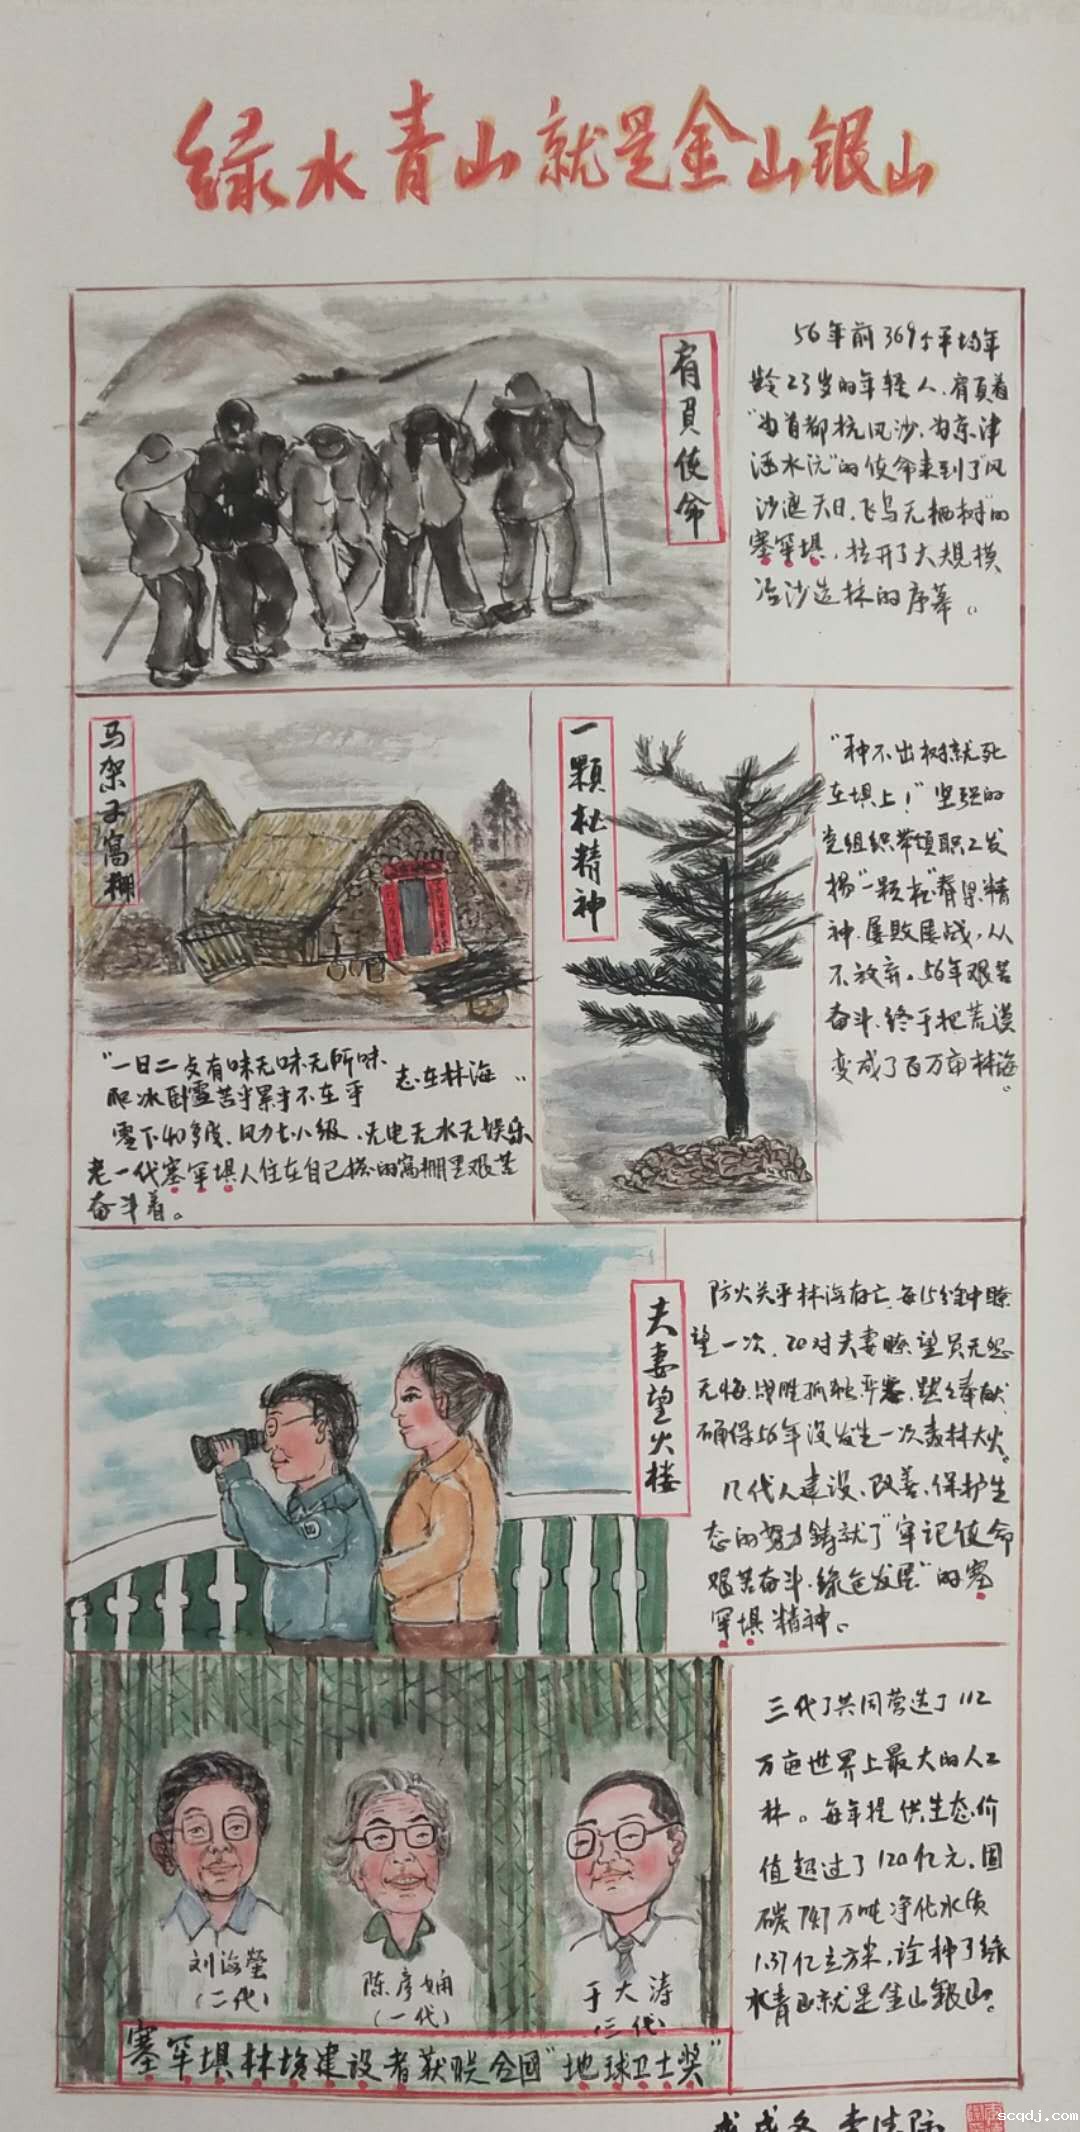 绿水青山就是金山银山
肩负使命
56年前369个平均年
龄23岁的年轻人,肩负着
"为首都抗风沙,为京津
涵水沅"的使命来到了"风
沙遮天日,飞鸟无栖树"的
塞罕坝,拉开了大规模
治沙造林的序幕。
马架子窝棚
"一日三友有味无味无所味
爬冰卧雪苦乎累乎不在乎
志在林海"
零下40多度,风力七八级,无电无水无娱乐
老一代塞罕坝人住在自己搭的窝棚里艰苦
奋斗着。
一颗松精神
"种不出树就死
在坝上!"坚强的
党组织带领职工发
扬"一颗松"脊梁精
神,屡败屡战,从
不放弃。56年艰苦
奋斗,终于把荒漠
变成了百万亩林海。
夫妻望火楼
防火关乎林海存亡,每15分钟瞭
望一次,20对夫妻瞭望员无怨
无悔,战胜孤独严寒,默々奉献,
确保56年没发生一次森林大火。
几代人建设、改善、保护生
态的努力铸就了"牢记使命
艰苦奋斗,绿色发展"的塞
罕坝精神。
三代了共同营造了112
万亩世界上最大的人工
林。每年提供生态价
值超过了120亿元,固
碳747万吨净化水质
1.37亿立方米,诠释了绿
水青山就是金山银山。
刘海莹
(二代)
陈彦娴
(一代)
于大涛
(三代)
塞罕坝林场建设者获联合国"地球卫士奖"
scqdj.com